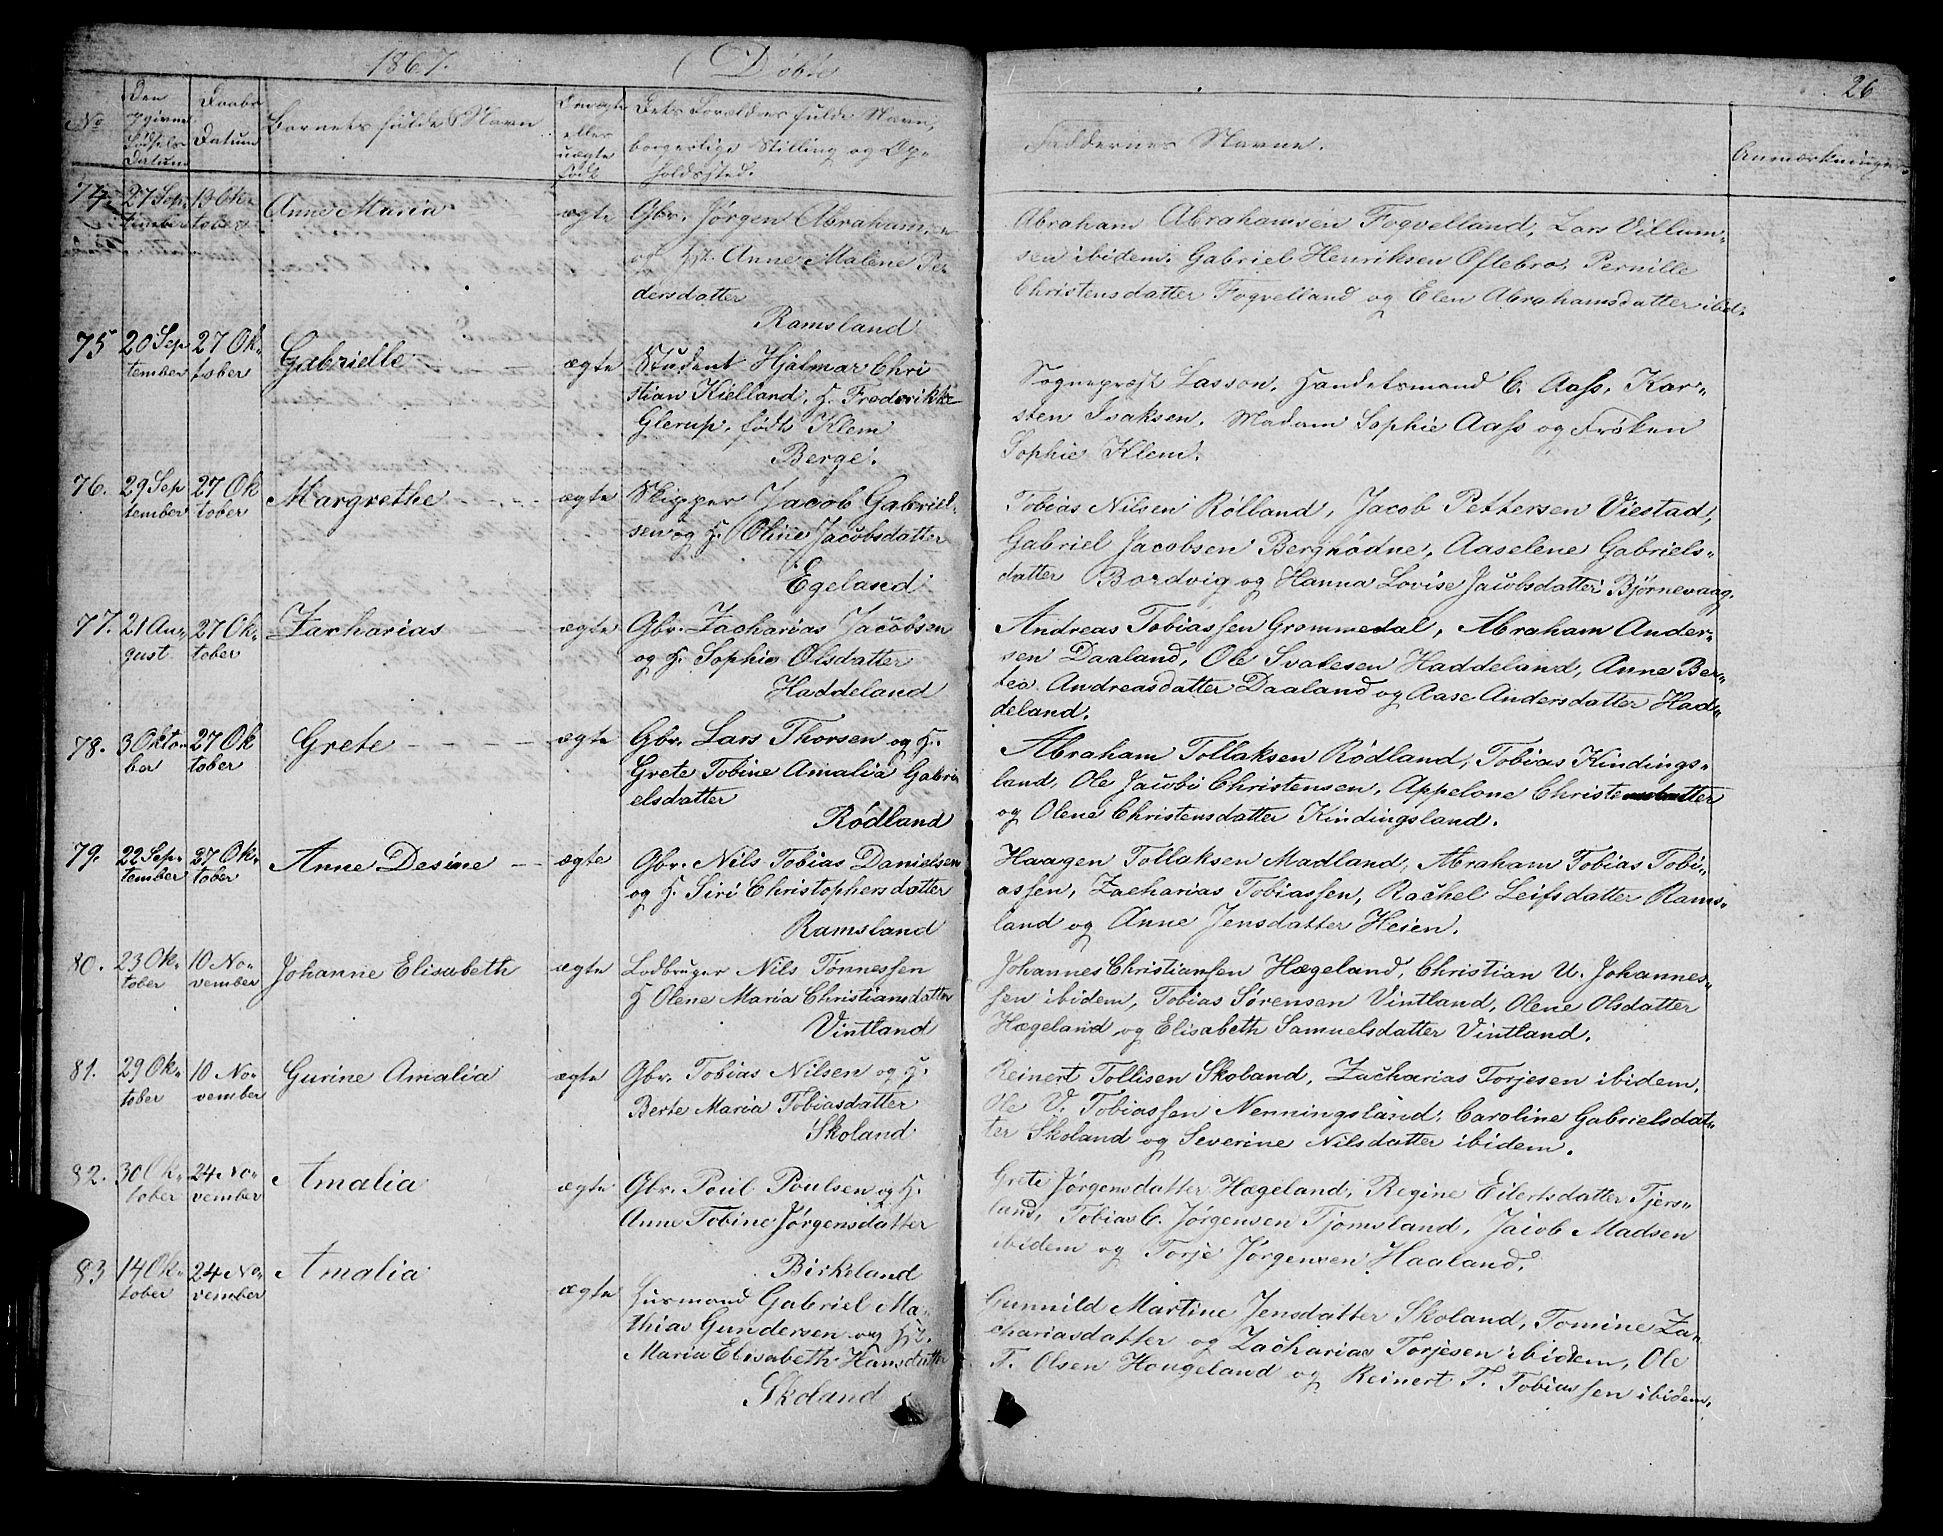 1867. Døbte
26
No
Den opgivne Fødsels Datum
Daabs Datum
Barnets fulde Navn
Om ægte eller uægte født
Dets Forældres fulde Navn, borgerlige Stilling og Opholdssted.
Faddernes Navne.
Anmærkninger
74. 27 Sep- 13 Ok- Anne Maria ægte Gbr. Jørgen Abrahamsen
tember tober og Hst. Anne Malene Pe-
dersdatter
Ramsland
Abraham Abrahamsen Fogvelland, Lars Villum-
sen ibidem. Gabriel Henriksen Oftebro, Pernille
Christensdatter Fogvelland og Elen Abrahamsdatter ibid.
75 20 Sep 27 Ok- Gabrielle ægte Student Hjalmar Chri
tember tober stian Kielland, H. Frederikke
Glerup, født Klem
Berge.
Sognepræst Lasson. Handelsmand C. Aass, Kar-
sten Isaksen. Madam Sophie Aass og Frøken
Sophie Klem.
76. 29 Sep 27 Ok Margrethe ægte Skipper Jacob Gabriel-
tember tober sen og H. Oline Jacobsdatter
Egeland
Tobias Nilsen Rølland, Jacob Pettersen Viestad,
Gabriel Jacobsen Berghødne, Aaselene Gabriels-
datter Bordvig og Hanna Lovise Jacobsdatter Bjørnevaag.
77. 21 Au- 27 Ok- Zacharias ægte Gbr. Zacharias Jacobsen
gust tober og H. Sophie Olsdatter
Haddeland
Andreas Tobiassen Grommedal, Abraham Ander-
sen Daaland, Ole Svalesen Haddeland, Anne Ber-
tea Andreasdatter Daaland og Aase Andersdatter Had-
deland.
78. 3 Okto- 27 Ok Grete ægte Gbr. Lars Thorsen og H.
ber tober Grete Tobine Amalia Gabri
elsdatter
Rödland
Abraham Tollaksen Rödland, Tobias Kindings-
land, Ole Jacobi Christensen, Appelone Christensdatter
og Olene Christensdatter Kindingsland.
79. 22 Sep- 27 Ok- Anne Desine ægte Gbr. Nils Tobias Danielsen
tember tober og H. Siri Christophersdatter
Ramsland
Haagen Tollaksen Madland, Abraham Tobias Tobi-
assen, Zacharias Tobiassen, Rachel Leifsdatter Rams-
land og Anne Jensdatter Heien.
80. 23 Ok- 10 No- Johanne Elisabeth ægte Lodbruger Nils Tønnessen
tober vember H Olene Maria Christiansdatter
Vintland
Johannes Christiansen Hægeland, Christian U. Johannes-
sen ibidem, Tobias Sørensen Vintland, Olene Olsdatter
Hægeland og Elisabeth Samuelsdatter Vintland.
81. 29 Ok- 10 No- Gurine Amalia ægte Gbr. Tobias Nilsen og H.
tober vember Berte Maria Tobiasdatter
Skoland
Reinert Tollisen Skoland, Zacharias Torjesen ibidem,
Ole V. Tobiassen Nenningsland, Caroline Gabrielsdat-
ter Skoland og Severine Nilsdatter ibidem.
82. 30 Ok- 24 No- Amalia ægte Gbr. Poul Poulsen og H.
tober vember Anne Tobine Jørgensdatter
Birkeland
Grete Jørgensdatter Hægeland, Regine Eilertsdatter Tjers-
land, Tobias C. Jørgensen Tjomsland, Jacob Madsen
ibidem og Torje Jørgensen Haaland.
83 14 Ok- 24 No- Amalia ægte Husmand Gabriel Ma-
tober vember thias Gundersen og Hst.
Maria Elisabeth Hansdatter
Skoland
Gunnild Martine Jensdatter Skoland, Tomine Za-
chariasdatter og Zacharias Torjesen ibidem, Ole
T. Olsen Hougeland og Reinert T. Tobiassen ibidem.